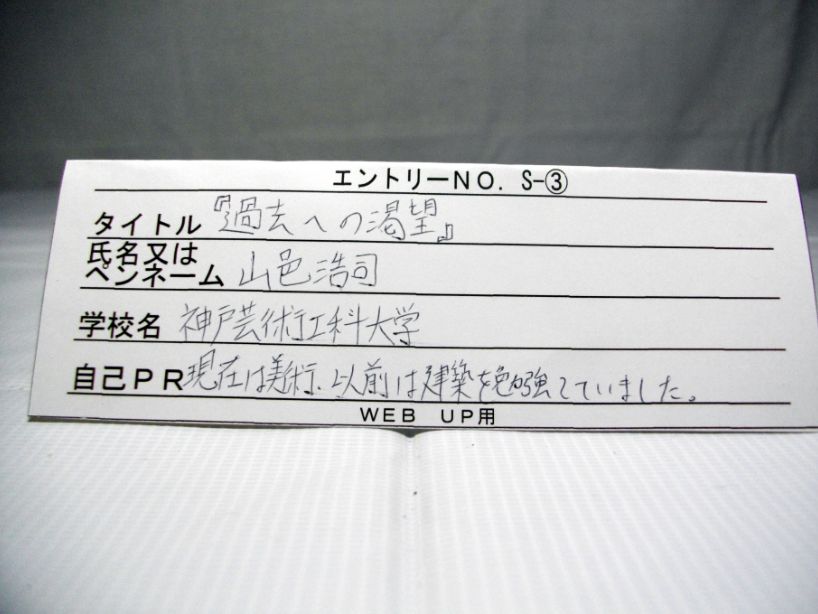 エントリーNO. S-③
タイトル 『過去への渇望』
氏名又は
ペンネーム 山邑浩司
学校名 神戸芸術工科大学
自己PR 現在は美術、以前は建築を勉強していました。
WEB UP用